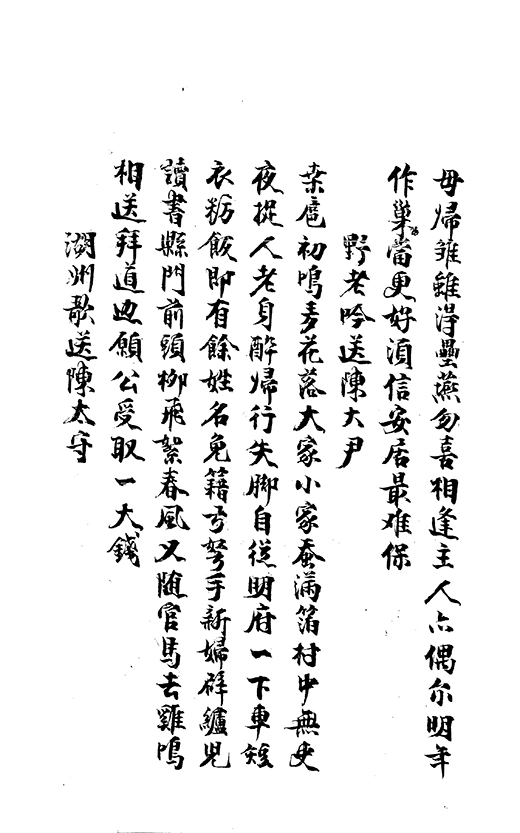 母歸雏雖得壘燕勿喜相逢主人亦偶尔明年
作巢當更好湏信安居最难保
野老吟送陳大尹
桒扈初鳴麦花落大家小家蚕滿箔村中無吏
夜捉人老身醉歸行失脚自從明府一下車短
衣粝飯即有餘姓名免籍弓弩手新婦辟纑児
讀書縣門前頭栁飛絮春風又随官馬去雞鳴
相送拜道边願公受取一大錢
湖州歌送陳太守